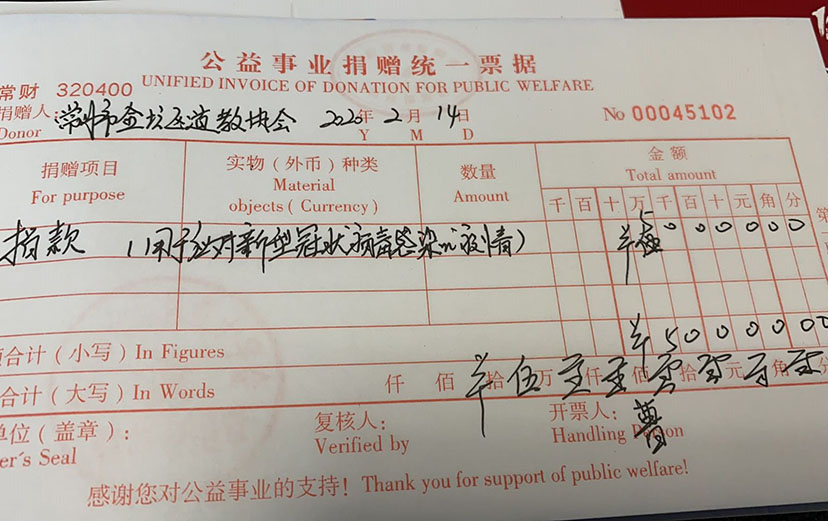 公益事业捐赠统一票据
常财 320400 UNIFIED INVOICE OF DONATION FOR PUBLIC WELFARE
捐赠人: 常州市金坛区道教协会 2020年 2月 14日 No 00045102
Donor Y M D
捐赠项目 实物(外币)种类 数量 金额
For purpose Material Amount Total amount
objects(Currency) 千 百 十 万 千 百 十 元 角 分
捐款 (用于应对新型冠状病毒感染的疫情) ¥ 5 0 0 0 0 0 0
合计(小写)In Figures ¥ 5 0 0 0 0 0 0
合计(大写)In Words 仟 佰 拾 ¥ 万 伍 仟 零 佰 零 拾 零 元 零 角 零 分
单位(盖章): 复核人: 开票人:
er's Seal Verified by Handling Person
感谢您对公益事业的支持! Thank you for support of public welfare!